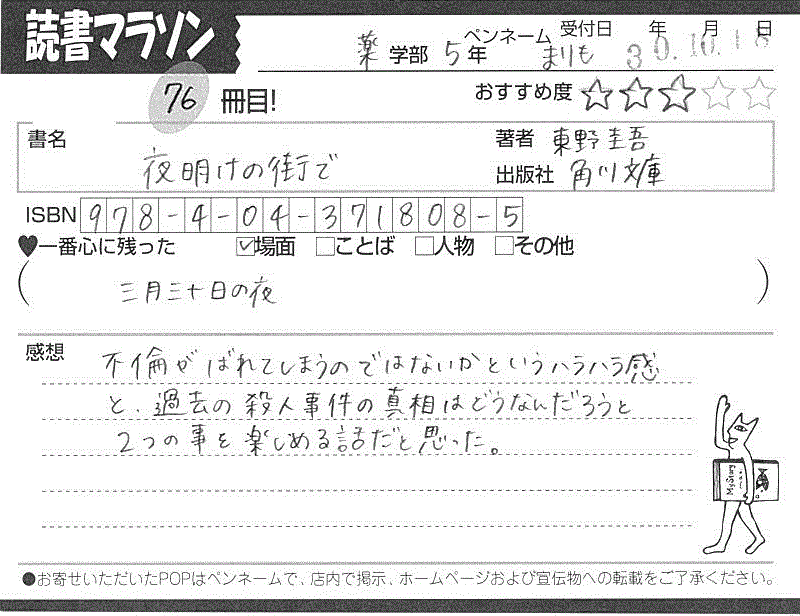 読書マラソン
薬 学部 5 年 ペンネーム まりも 受付日 年 月 日
30.10.18
76 冊目! おすすめ度 ★★★☆☆
書名 夜明けの街で
著者 東野圭吾
出版社 角川文庫
ISBN 978-4-04-371808-5
♥一番心に残った ☑場面 □ことば □人物 □その他
( 三月三十日の夜 )
感想 不倫がばれてしまうのではないかというハラハラ感
と、過去の殺人事件の真相はどうなんだろうと
2つの事を楽しめる話だと思った。
●お寄せいただいたPOPはペンネームで、店内で掲示、ホームページおよび宣伝物への転載をご了承ください。